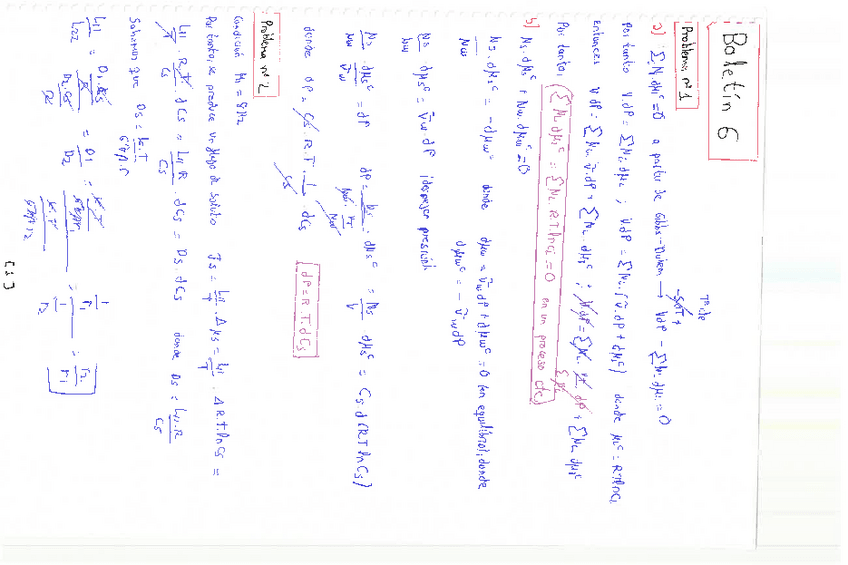 Boletín 6
Problema nº1
a) ∑Ni dμi^c = 0 a partir de Gibbs-Duhem → -SdT + VdP - ∑Ni dμi = 0
Por tanto V.dP = ∑Ni dμi ; VdP = ∑Ni (v̄i.dP + dμi^c) donde μi^c = RTlnci
Entonces VdP = ∑Ni.v̄i.dP + ∑Ni.dμi^c ;
Por tanto, ∑Ni dμi^c = ∑Ni.R.T.lnci = 0 en un proceso
b) Ns.dμs^c + Nw.dμw^c = 0
Ns/Nw . dμs^c = -dμw^c donde dμw = v̄w dP + dμw^c = 0 (en equilibrio), donde
dμw^c = - v̄w dP
Ns/Nw dμs^c = v̄w.dP (despejar presión)
Ns/Nw . dμs^c/v̄w = dP
dμs^c = Ns/V dμs^c = Cs d(RTlnCs)
donde dP = Cs.R.T.1/Cs.dCs dP = R.T.dCs
Problema nº2
Por tanto, se produce un flujo de soluto Js = L11/T . Δμs = L11/T . ΔR.T.lnCs =
L11/T . R.T/Cs . dCs = L11.R/Cs . dCs = Ds.dCs donde Ds = L11.R/Cs
Sabemos que Ds = k.T/6πη.r
L11/L22 = D1.Cs/R / D2.Cs/R = D1/D2 = k.T/6πηr1 / k.T/6πηr2 = 1/r1 / 1/r2 = r2/r1